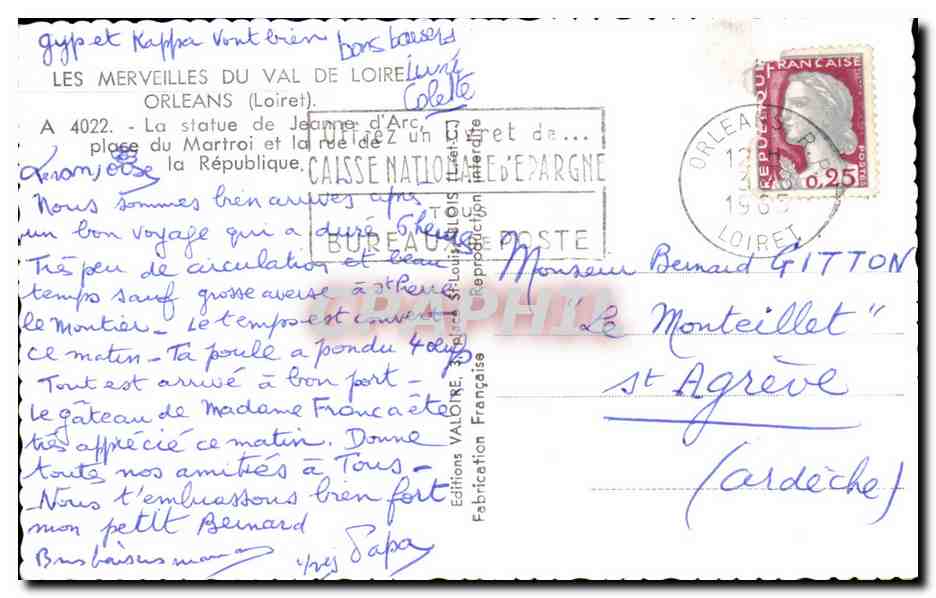 gyp et Kappa vont bien
bons baisers
Colette
LES MERVEILLES DU VAL DE LOIRE
ORLEANS (Loiret).
A 4022. - La statue de Jeanne d'Arc,
place du Martroi et la rue de
la République.
Françoise
Nous sommes bien arrivés après
un bon voyage qui a duré 6 heures
Très peu de circulation et beau
temps sauf grosse averse à St Pierre
le Moutier - Le temps est couvert
ce matin - Ta poule a pondu 4 œufs
Tout est arrivé à bon port -
Le gâteau de Madame Franc a été
très apprécié ce matin. Donne
toutes nos amitiés à Tous -
Nous t'embrassons bien fort
mon petit Bernard
Bons baisers maman
Papa
Editions VALOIRE, place St-Louis, BLOIS (L.-et-C.)
Fabrication Française
Reproduction interdite
Utilisez un Livret de...
CAISSE NATIONALE D'EPARGNE
TOUS
BUREAUX DE POSTE
ORLEANS R.P.
LOIRET
REPUBLIQUE
FRANÇAISE
POSTES
0,25
Monsieur Bernard GITTON
"Le Monteillet"
St Agrève
(Ardèche)
CPAPHIL